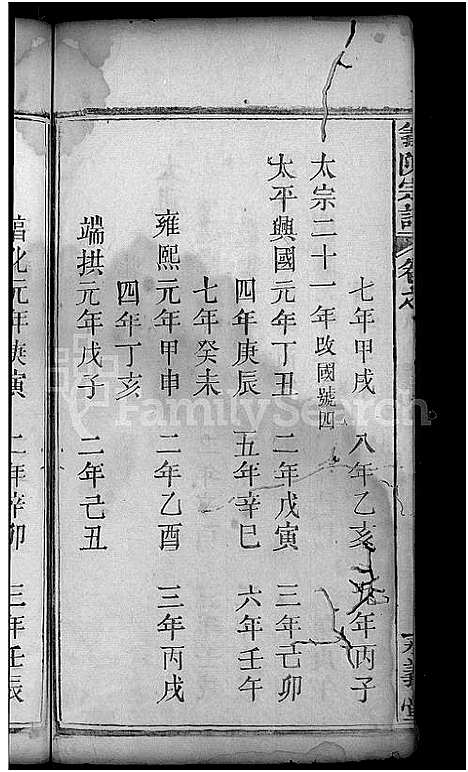 七年甲戌 八年乙亥 九年丙子
太宗二十一年改國號四
太平興國元年丁丑 二年戊寅 三年己卯
四年庚辰 五年辛巳 六年壬午
七年癸未
雍熙元年甲申 二年乙酉 三年丙戌
四年丁亥
端拱元年戊子 二年己丑
化元年庚寅 二年辛卯 三年壬辰
宗譜
義堂
FamilySearch